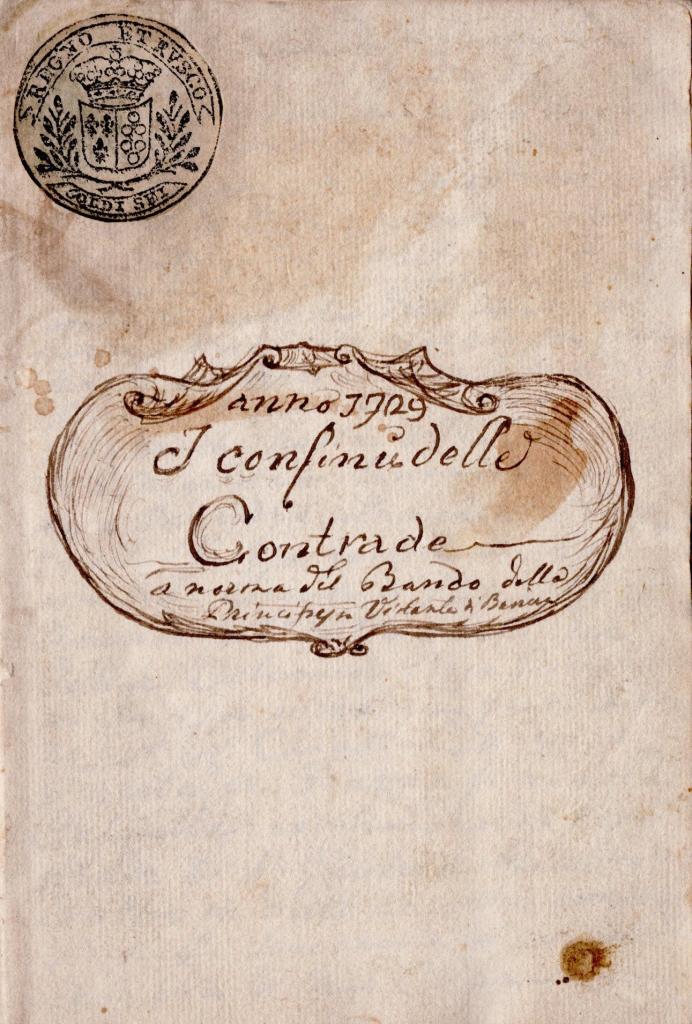 REGNO ETRUSCO
SOLDI SEI
anno 1729
I confini delle
Contrade
a norma del Bando della
Principessa Violante di